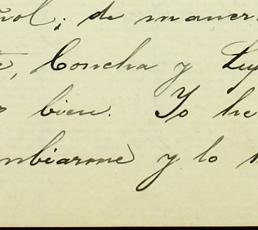 ñol; de maner
, Concha y Lu
bien. Yo he
mbiarme y lo